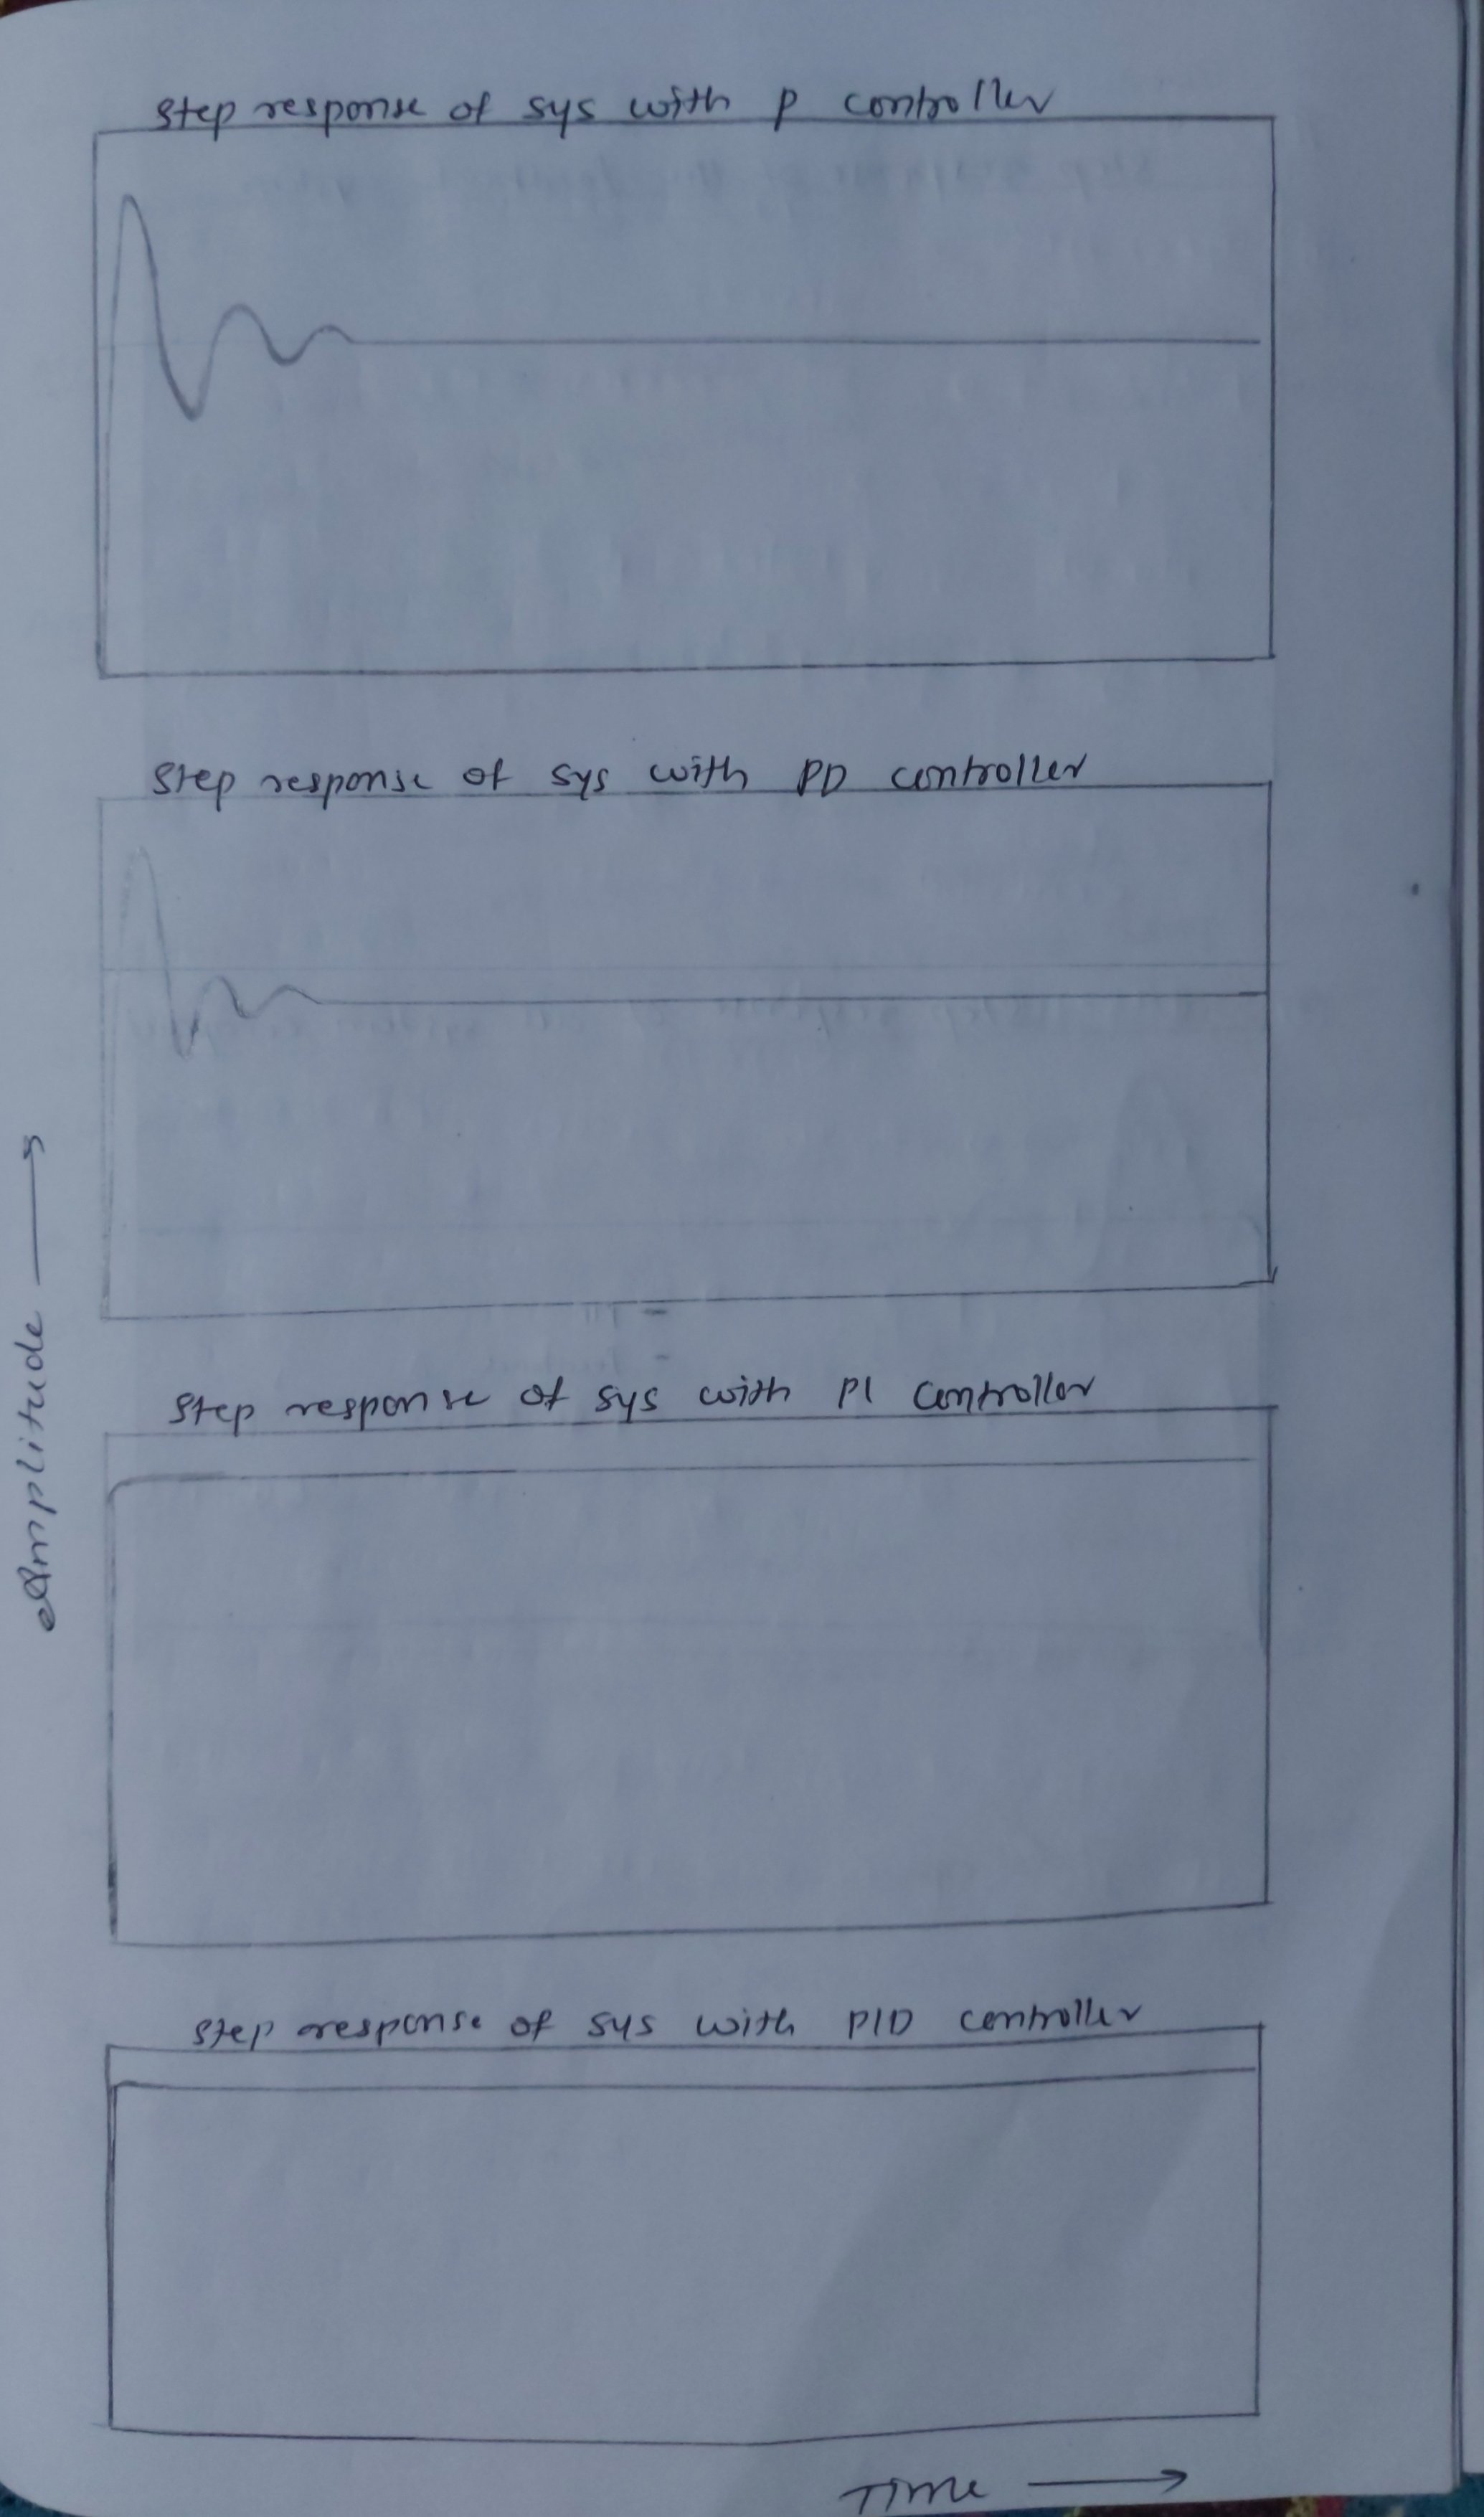 Step response of sys with P controller
Step response of sys with PD controller
Amplitude
Step response of sys with PI controller
Step response of sys with PID controller
Time